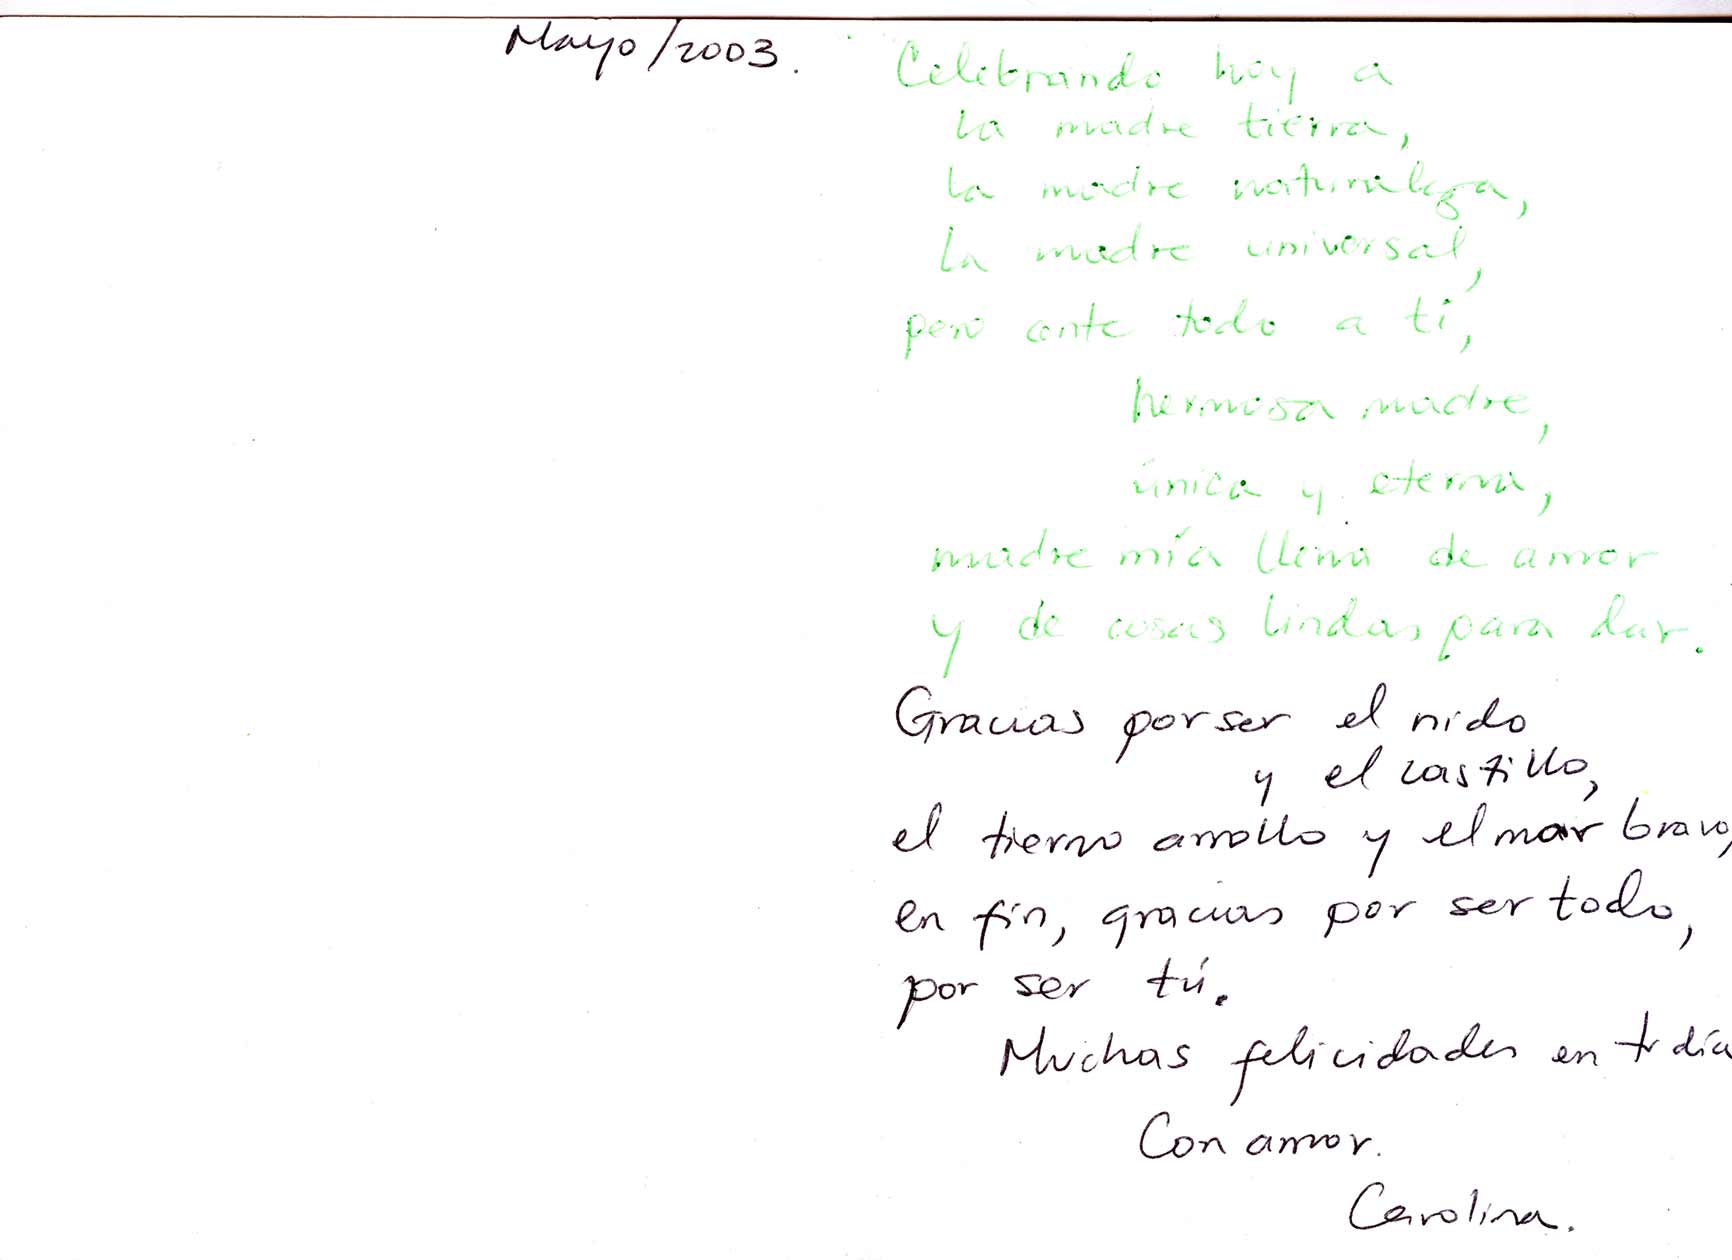 Mayo/2003.
Celebrando hoy a
la madre tierra,
la madre naturaleza,
la madre universal,
pero ante todo a ti,
hermosa madre,
única y eterna,
madre mía llena de amor
y de cosas lindas para dar.
Gracias por ser el nido
y el castillo,
el tierno arrollo y el mar bravo,
en fin, gracias por ser todo,
por ser tú.
Muchas felicidades en tu día
Con amor.
Carolina.